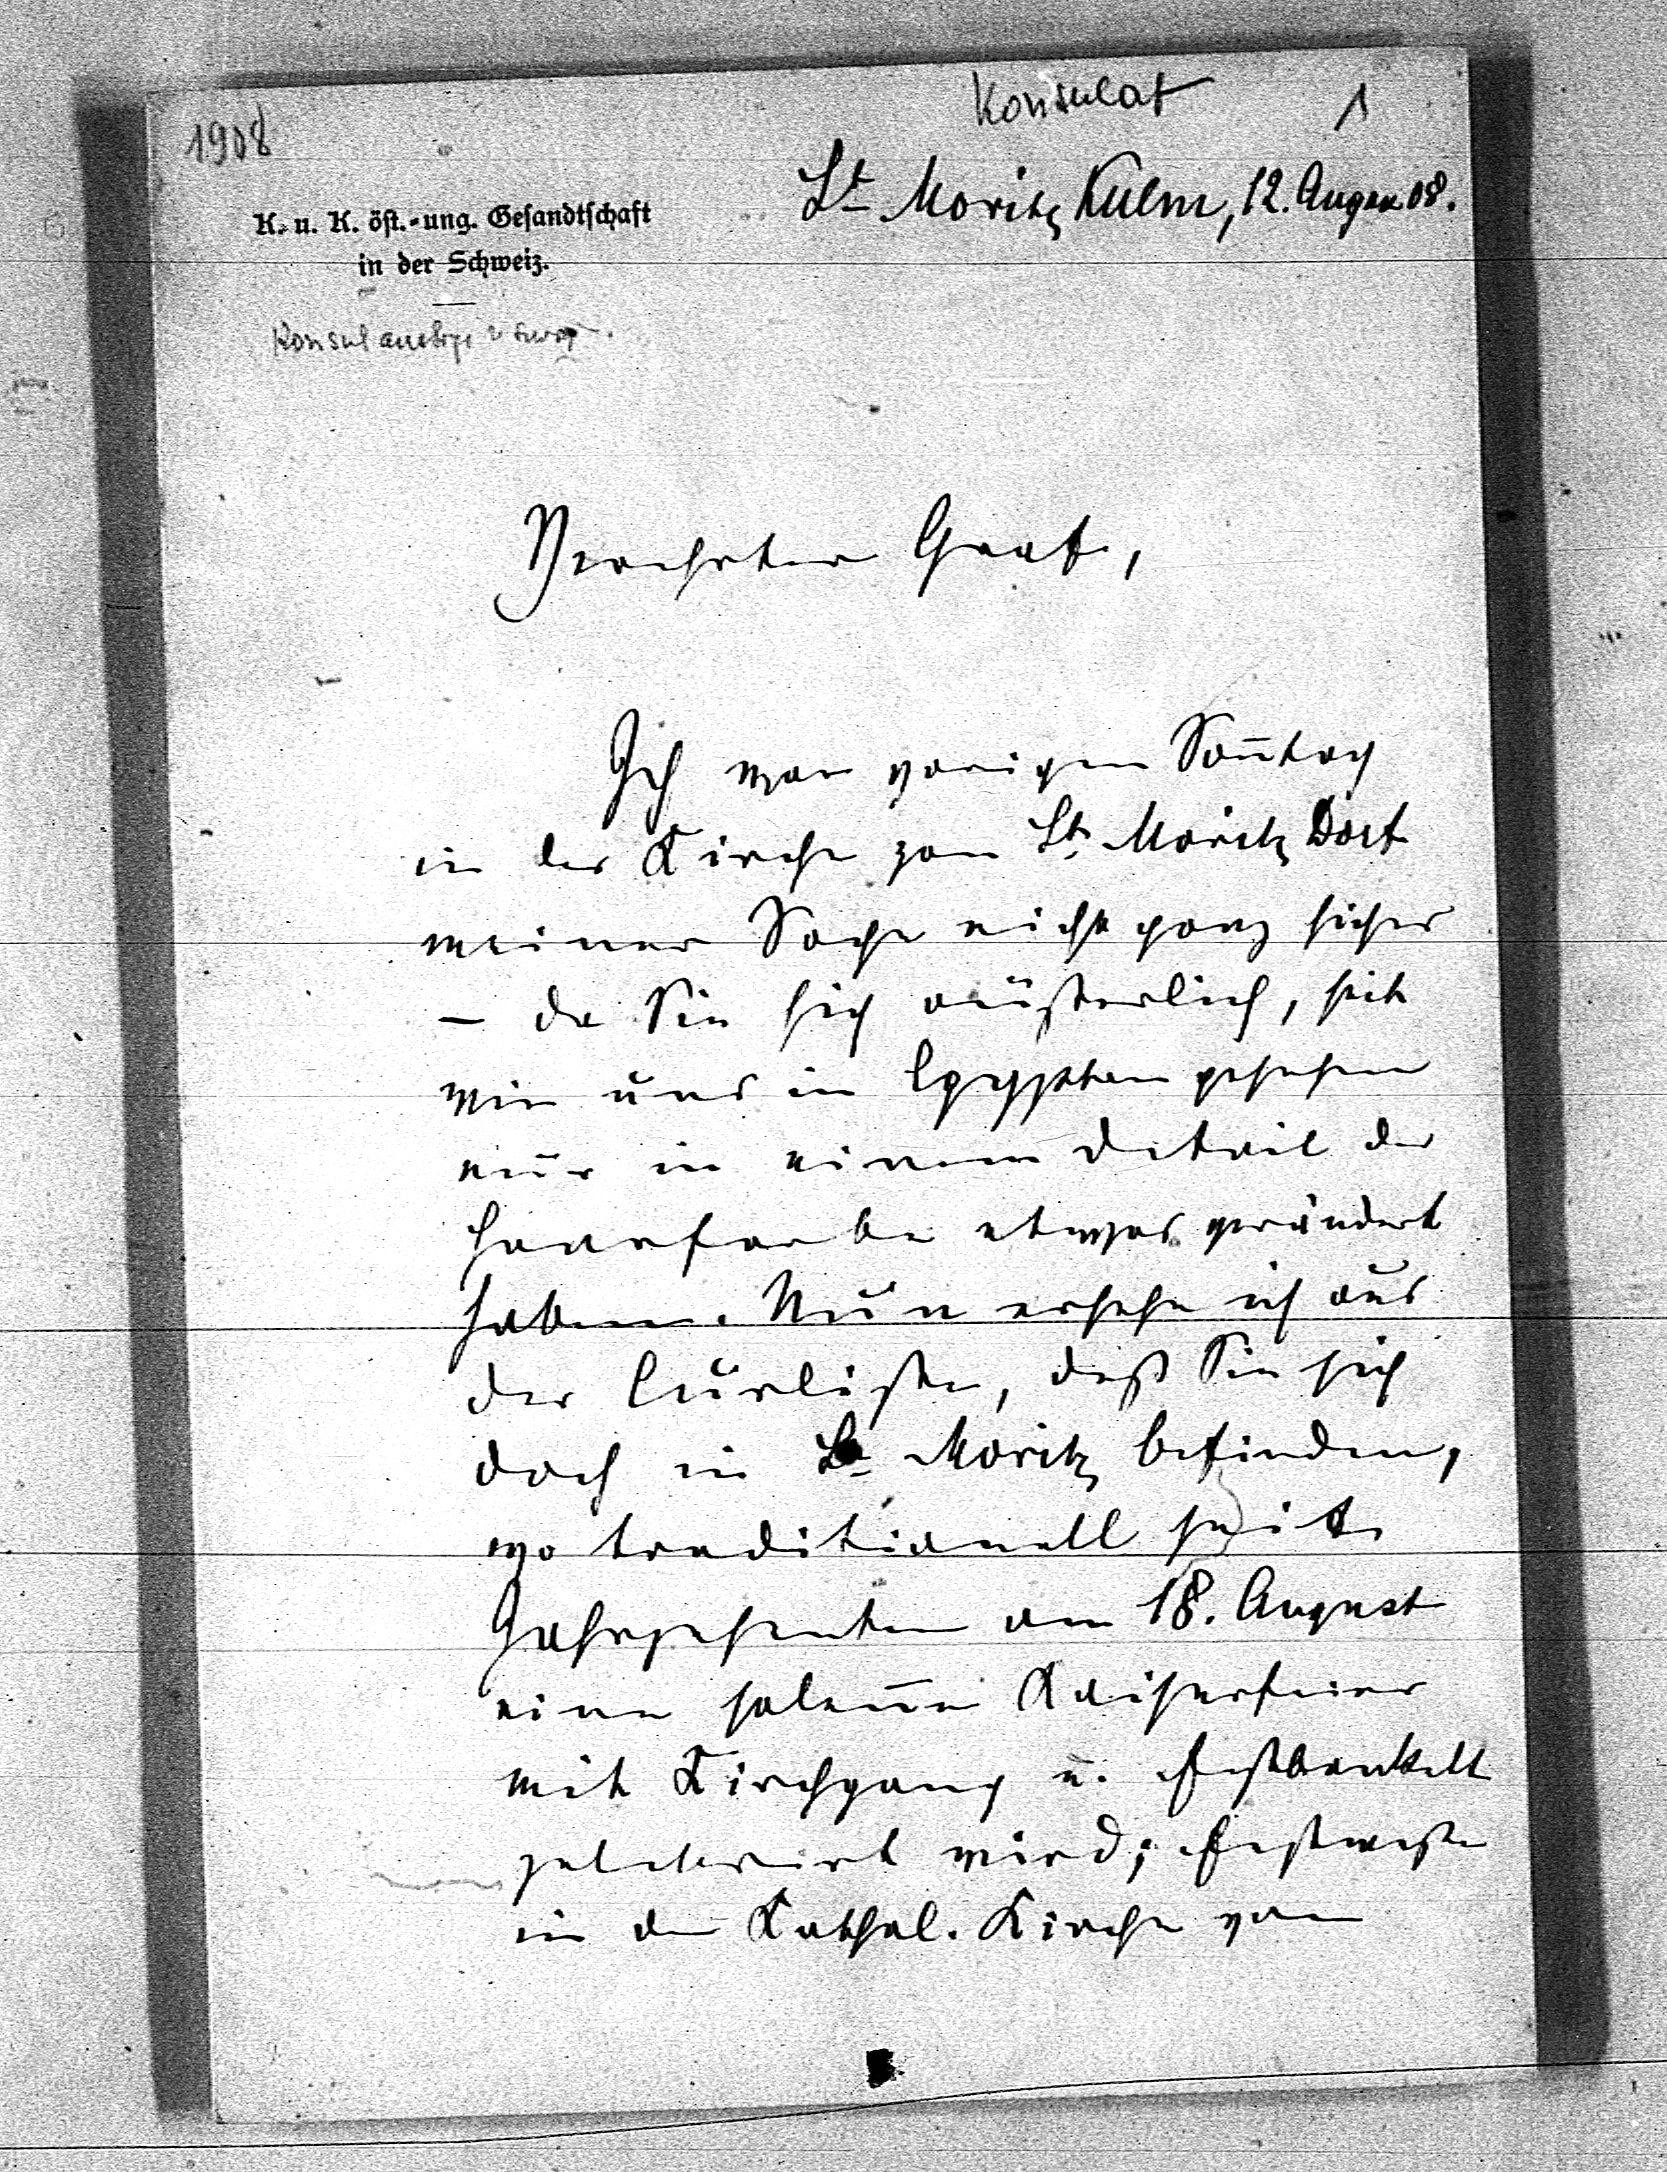 1908
Konsulat 1
St Moritz Kulm, 12. August 08.
K. u. K. öst.-ung. Gesandtschaft
in der Schweiz.
Verehrter Graf,
Ich war vorigen Soñtag
in der Kirche von St. Moritz Dorf
meiner Sache nicht ganz sicher
– da Sie sich äußerlich, seit
wir uns in Egypten gesehen
nur in einem Detail der
Haarfarbe etwas verändert
haben. Nun ersehe ich aus
der Curliste, daß Sie sich
doch in St. Moritz befinden,
wo traditionell seit
Jahrzehnten am 18. August
eine soleñe Kaiserfeier
mit Kirchgang u. Festbankett
zelebrirt wird; Festmesse
in der Kathol. Kirche von